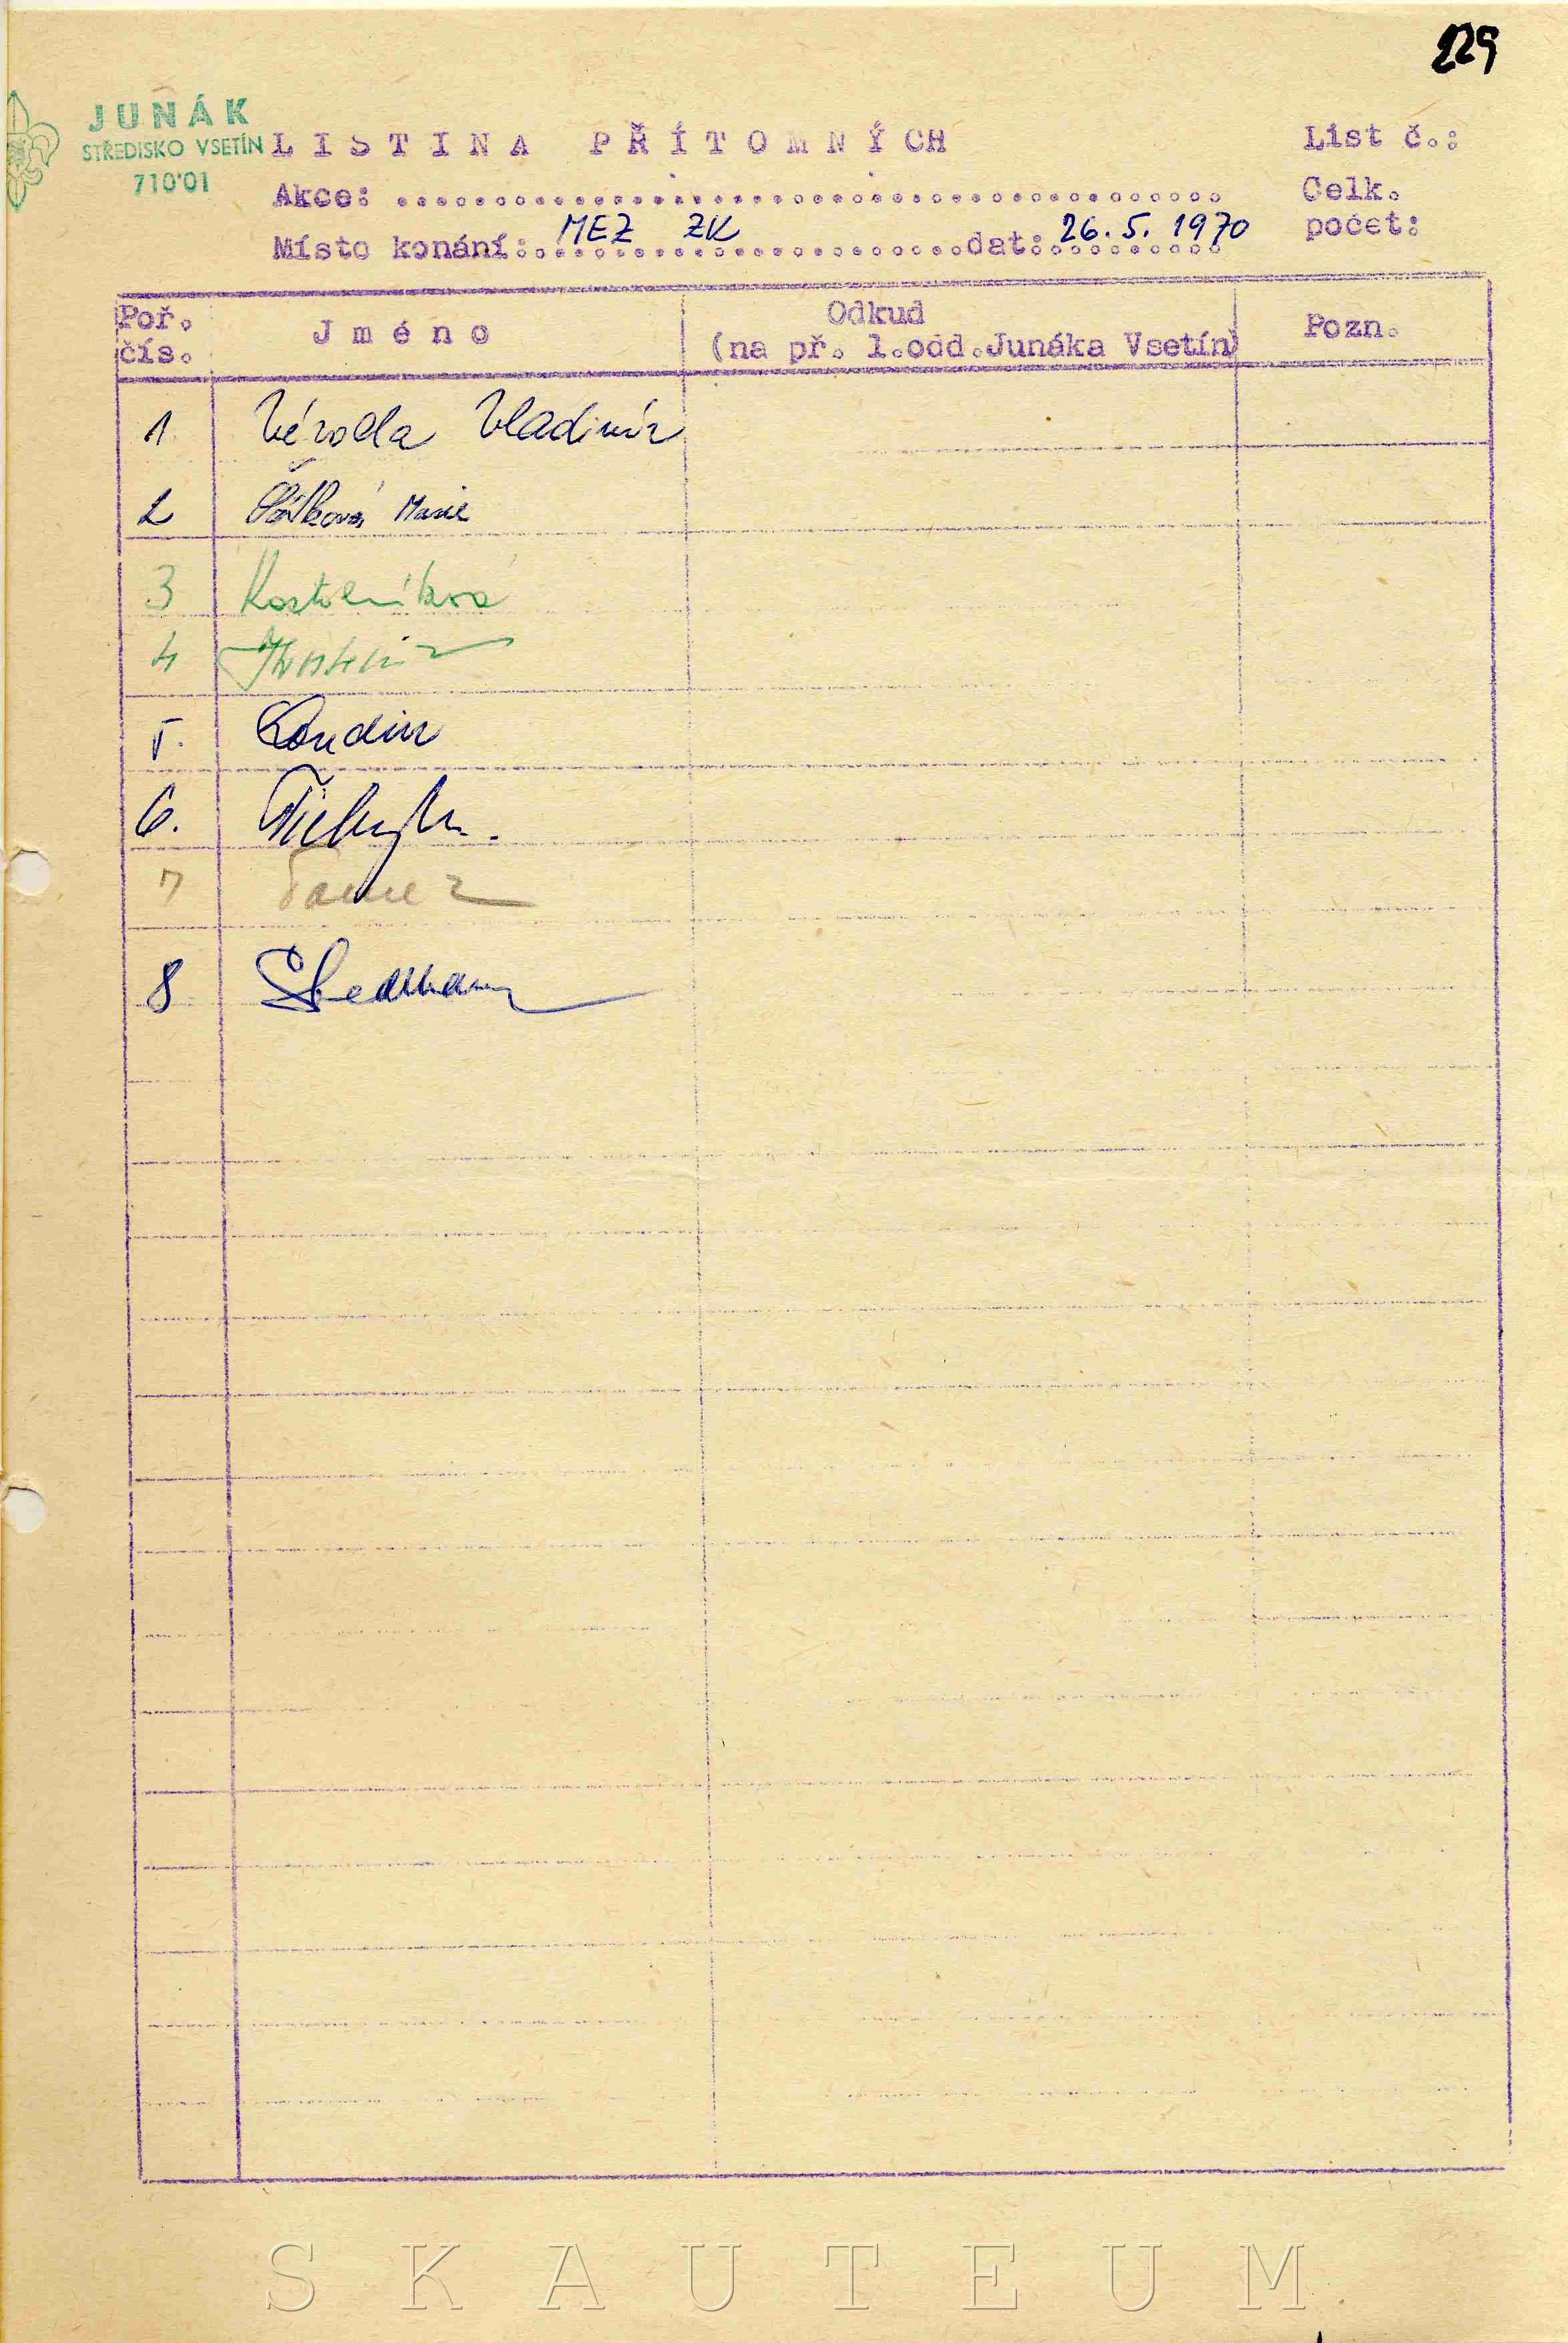 229
JUNÁK
STŘEDISKO VSETÍN
710'01
LISTINA PŘÍTOMNÝCH
List č.:
Akce: ..........................................
Celk.
počet:
Místo konání: MEZ ZK dat: 26. 5. 1970
Poř.
čís.
Jméno
Odkud
(na př. 1.odd.Junáka Vsetín)
Pozn.
1. Vladimír
2 Marie
3 Kostelníková
4
5. Londin
6.
7
8
SKAUTEUM